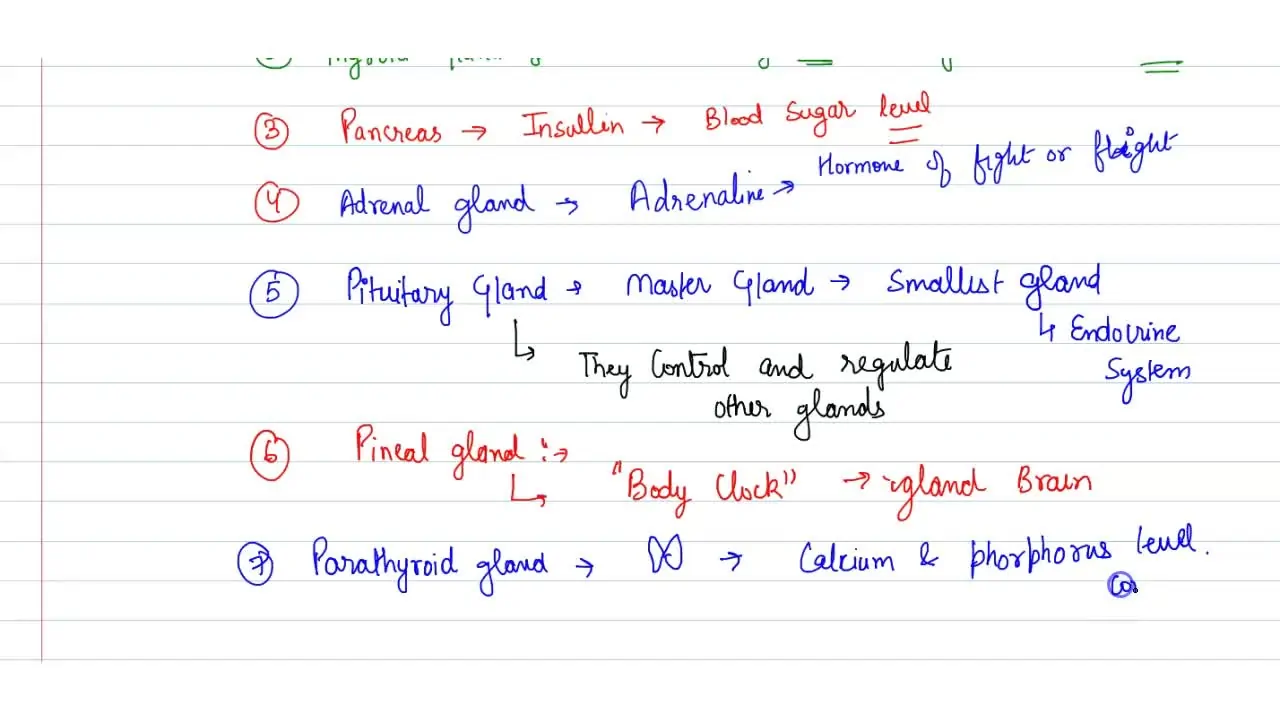 ③ Pancreas → Insullin → Blood Sugar level
④ Adrenal gland → Adrenaline → Hormone of fight or flight
⑤ Pituitary Gland → Master Gland → Smallest gland
↳ Endocrine
System
↳ They Control and regulate
other glands
⑥ Pineal gland :→
↳ "Body Clock" → gland Brain
⑦ Parathyroid gland → → Calcium & phorphorus level.
Co